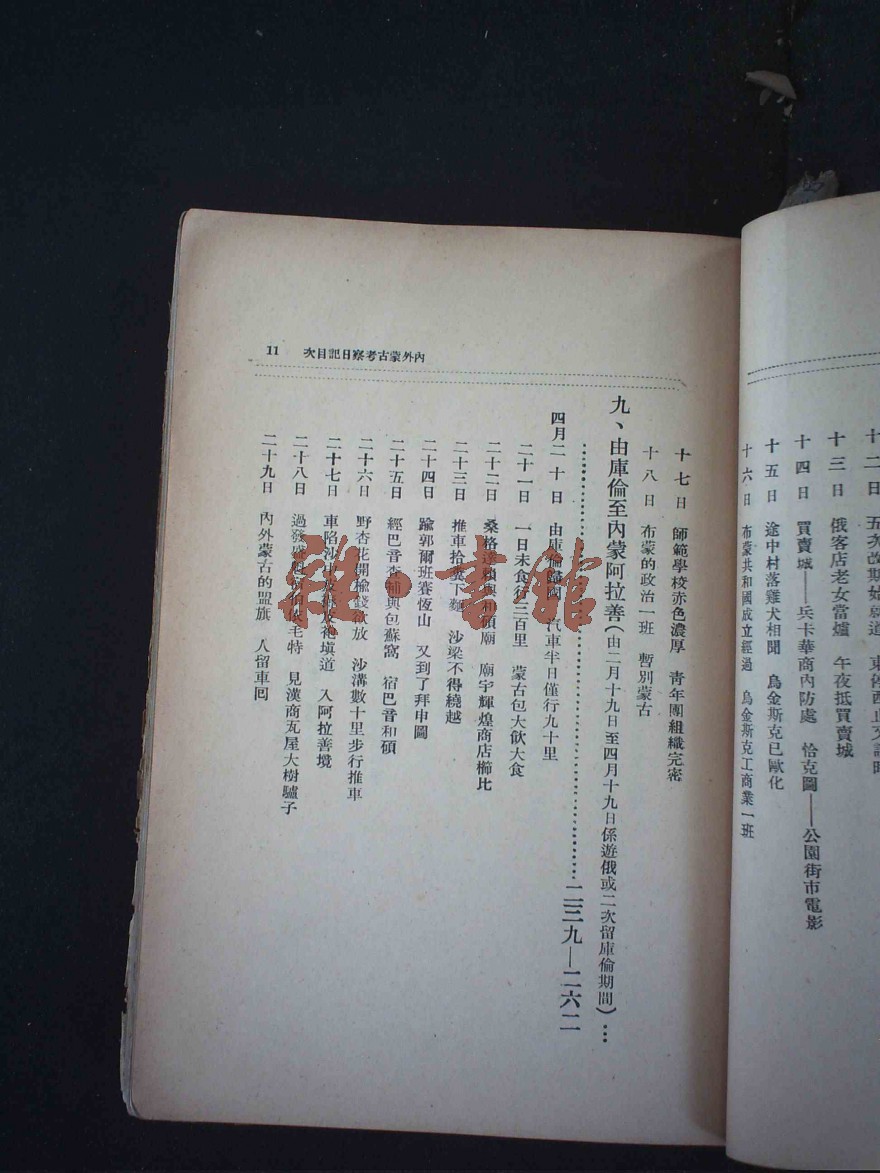 十二日 五次改期始就道
十三日 俄客店老女當爐 午夜抵買賣城
十四日 買賣城——兵卡華商內防處 恰克圖——公園街市電影
十五日 途中村落雞犬相聞 烏金斯克已歐化
十六日 布蒙共和國成立經過 烏金斯克工商業一班
內外蒙古考察日記目次 11
十七日 師範學校赤色濃厚 青年團組織完密
十八日 布蒙的政治一班 暫別蒙古
九、由庫倫至內蒙阿拉善(由二月十九日至四月十九日係遊俄或二次留庫倫期間)…
…………二三九—二六二
四月二十日 由庫倫歸國 汽車半日僅行九十里
二十一日 一日未食行三百里 蒙古包大飲大食
二十二日 桑格達賴與和碩廟 廟宇輝煌商店櫛比
二十三日 推車拾糞下麵 沙梁不得繞越
二十四日 踰郭爾班賽恆山 又到了拜申圖
二十五日 經巴音查補與包蘇窩 宿巴音和碩
二十六日 野杏花開榆錢欲放 沙溝數十里步行推車
二十七日 車陷河中皮袍塡道 入阿拉善境
二十八日 過發 毛特 見漢商瓦屋大樹驢子
二十九日 內外蒙古的盟旗 人留車囘
雜·書館